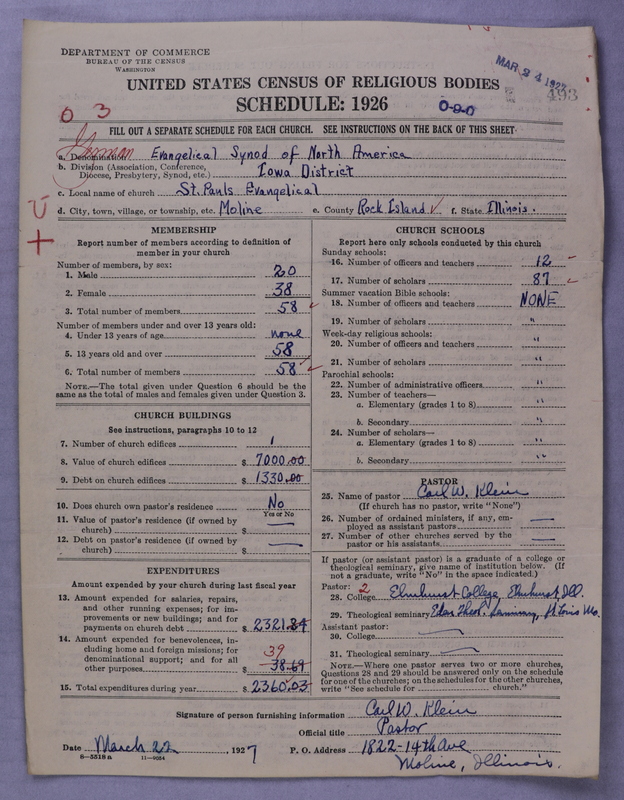 DEPARTMENT OF COMMERCE
BUREAU OF THE CENSUS
WASHINGTON
MAR 24 1927
493
UNITED STATES CENSUS OF RELIGIOUS BODIES
SCHEDULE: 1926
0-0-0
0 3
FILL OUT A SEPARATE SCHEDULE FOR EACH CHURCH. SEE INSTRUCTIONS ON THE BACK OF THIS SHEET
German
a. Denomination Evangelical Synod of North America
b. Division (Association, Conference, Diocese, Presbytery, Synod, etc.) Iowa District
c. Local name of church St. Pauls Evangelical
d. City, town, village, or township, etc. Moline e. County Rock Island f. State Illinois.
MEMBERSHIP
Report number of members according to definition of
member in your church
Number of members, by sex:
1. Male 20
2. Female 38
3. Total number of members 58
Number of members under and over 13 years old:
4. Under 13 years of age none
5. 13 years old and over 58
6. Total number of members 58
NOTE.—The total given under Question 6 should be the
same as the total of males and females given under Question 3.
CHURCH BUILDINGS
See instructions, paragraphs 10 to 12
7. Number of church edifices 1
8. Value of church edifices $ 7000.00
9. Debt on church edifices $ 1330.00
10. Does church own pastor's residence No
Yes or No
11. Value of pastor's residence (if owned by
church) $ —
12. Debt on pastor's residence (if owned by
church) $ —
EXPENDITURES
Amount expended by your church during last fiscal year
13. Amount expended for salaries, repairs,
and other running expenses; for im-
provements or new buildings; and for
payments on church debt $ 2321.34
14. Amount expended for benevolences, in-
cluding home and foreign missions; for
denominational support; and for all
other purposes $ 38.69
39
15. Total expenditures during year $ 2360.03
CHURCH SCHOOLS
Report here only schools conducted by this church
Sunday schools:
16. Number of officers and teachers 12
17. Number of scholars 87
Summer vacation Bible schools:
18. Number of officers and teachers NONE
19. Number of scholars "
Week-day religious schools:
20. Number of officers and teachers "
21. Number of scholars "
Parochial schools:
22. Number of administrative officers "
23. Number of teachers—
a. Elementary (grades 1 to 8) "
b. Secondary "
24. Number of scholars—
a. Elementary (grades 1 to 8) "
b. Secondary "
PASTOR
25. Name of pastor Carl W. Klein
(If church has no pastor, write "None")
26. Number of ordained ministers, if any, em-
ployed as assistant pastors —
27. Number of other churches served by the
pastor or his assistants —
If pastor (or assistant pastor) is a graduate of a college or
theological seminary, give name of institution below. (If
not a graduate, write "No" in the space indicated.)
Pastor: 2
28. College Elmhurst College, Elmhurst Ill.
29. Theological seminary Eden Theol. Seminary, St Louis Mo.
Assistant pastor:
30. College —
31. Theological seminary —
NOTE.—Where one pastor serves two or more churches,
Questions 28 and 29 should be answered only on the schedule
for one of the churches; on the schedules for the other churches,
write "See schedule for church."
Signature of person furnishing information Carl W. Klein
Official title Pastor
Date March 22, 1927 P. O. Address 1822-14th Ave
Moline, Illinois.
8—5518a 11—9034